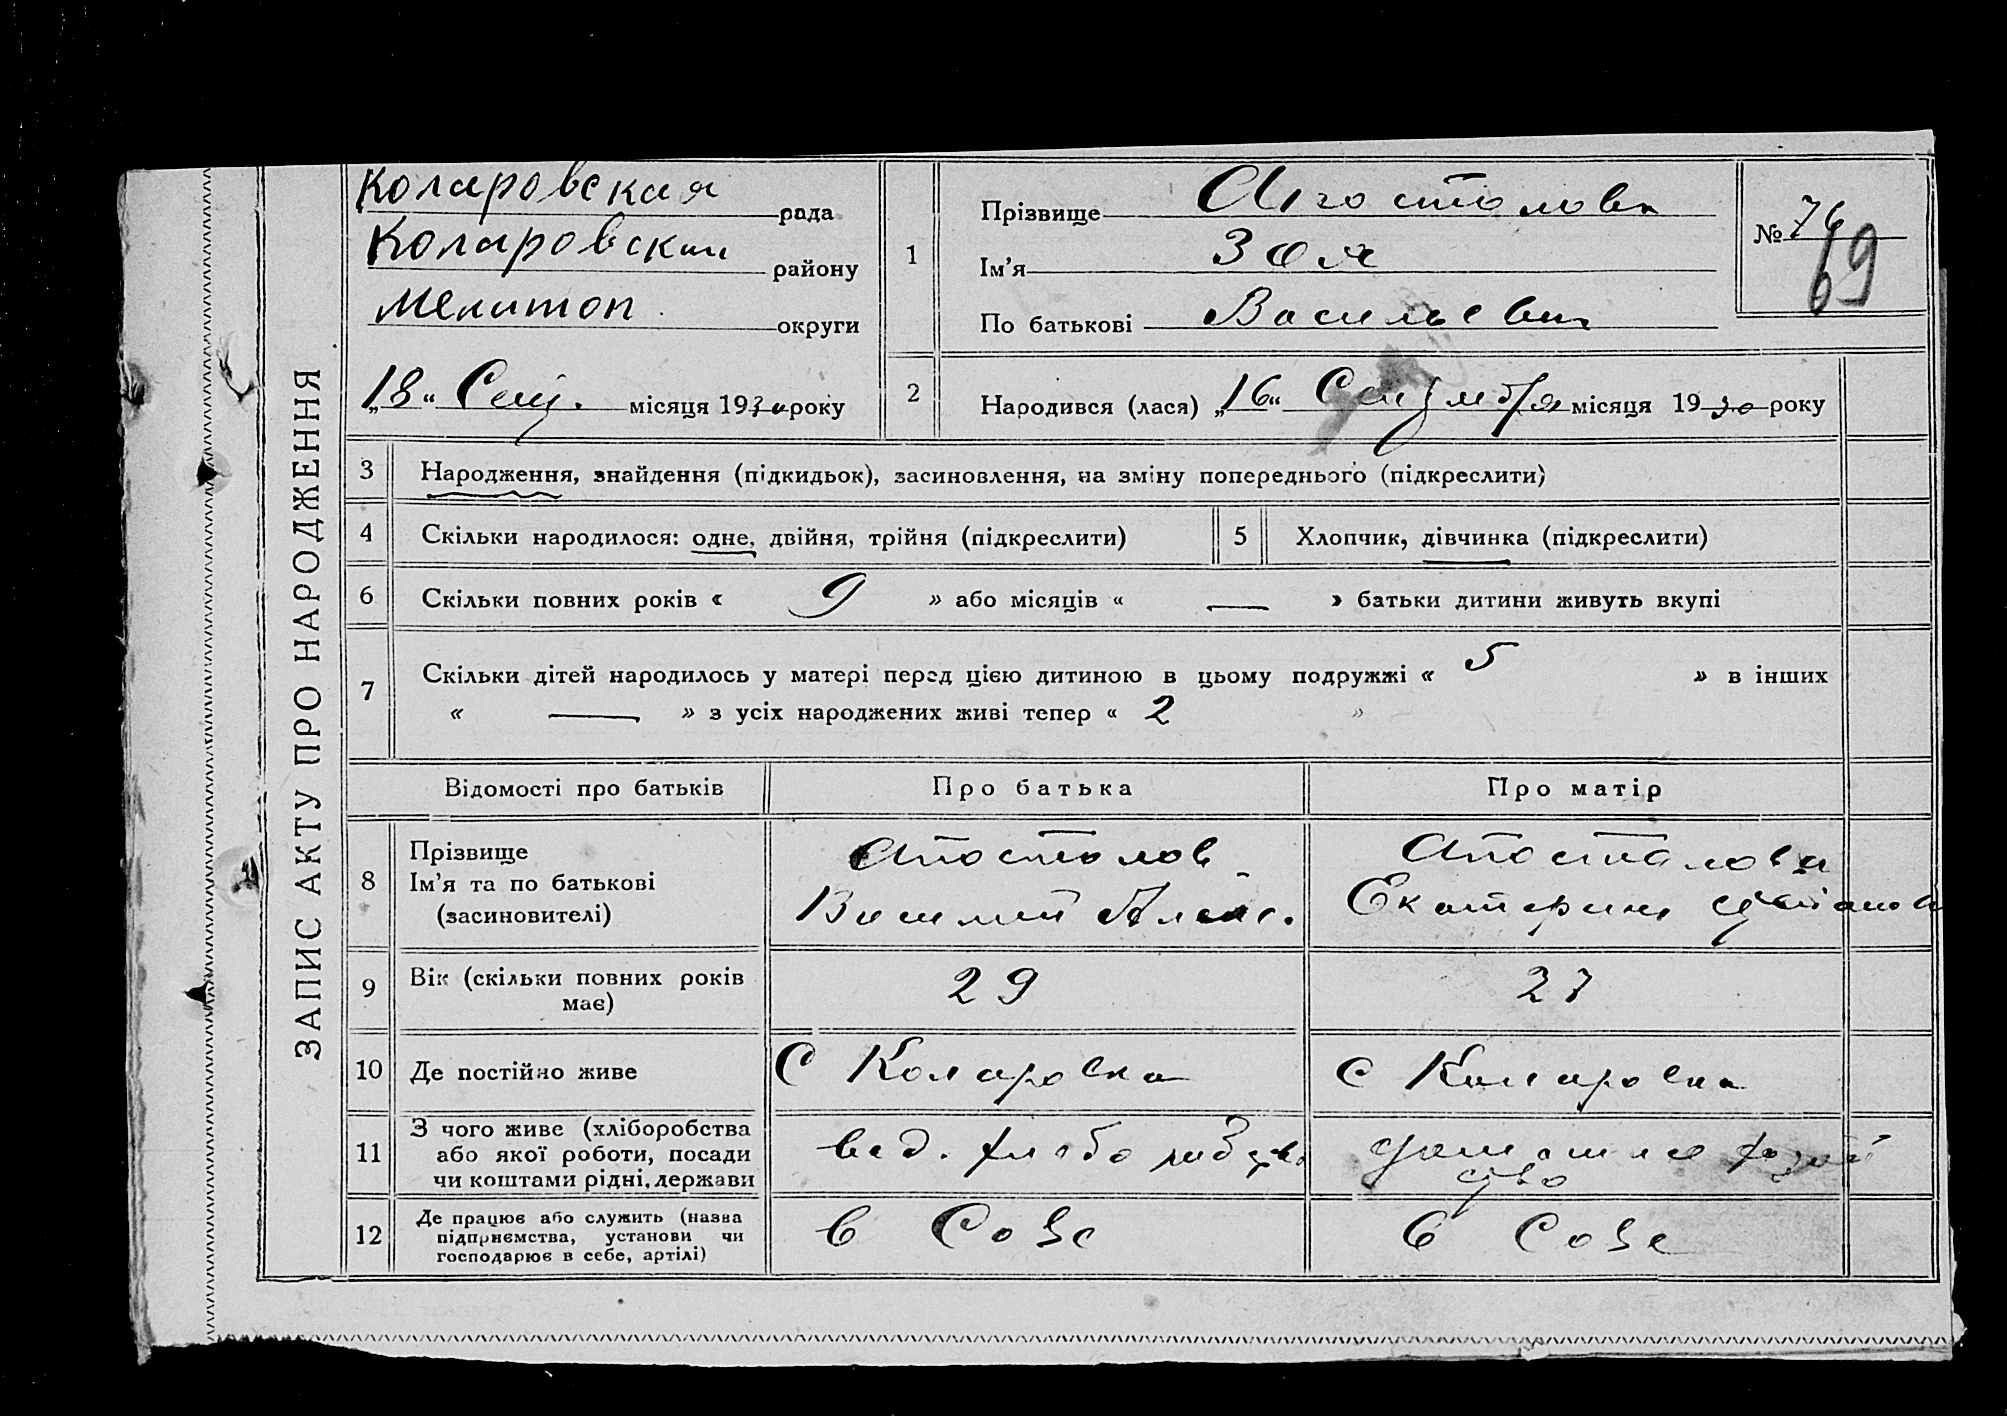 ЗАПИС АКТУ ПРО НАРОДЖЕННЯ
Коларовская рада
Коларовский району
Мелитоп. округи
„18“ Сент. місяця 1930 року
1
Прізвище Апостолова
Ім'я Зоя
По батькові Васильевн
№ 76
69
2
Народився (лася) „16“ Сентября місяця 1930 року
3 Народження, знайдення (підкидьок), засиновлення, на зміну попереднього (підкреслити)
4 Скільки народилося: одне, двійня, трійня (підкреслити)
5 Хлопчик, дівчинка (підкреслити)
6 Скільки повних років « 9 » або місяців « — » батьки дитини живуть вкупі
7 Скільки дітей народилось у матері перед цією дитиною в цьому подружжі « 5 » в інших
« — » з усіх народжених живі тепер « 2 »
Відомості про батьків Про батька Про матір
8 Прізвище
Ім'я та по батькові
(засиновителі)
Апостолов
Василий Алекс.
Апостолова
Екатерина
9 Вік (скільки повних років
має)
29
27
10 Де постійно живе
С Коларовка
С Коларовка
11 З чого живе (хліборобства
або якої роботи, посади
чи коштами рідні, держави
вед. хлебо
домашнее хозяй
ство
12 Де працює або служить (назва
підприємства, установи чи
господарює в себе, артілі)
в Созе
в Созе